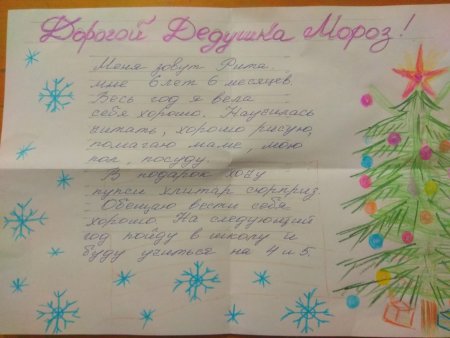 Дорогой Дедушка Мороз!
Меня зовут Рита.
мне 6 лет 6 месяцев.
Весь год я вела
себя хорошо. Научилась
читать, хорошо рисую,
помогаю маме, мою
пол, посуду.
В подарок хочу
пупси сюрприз
Обещаю вести себя
хорошо. На следующий
год пойду в школу и
буду учиться на 4 и 5.